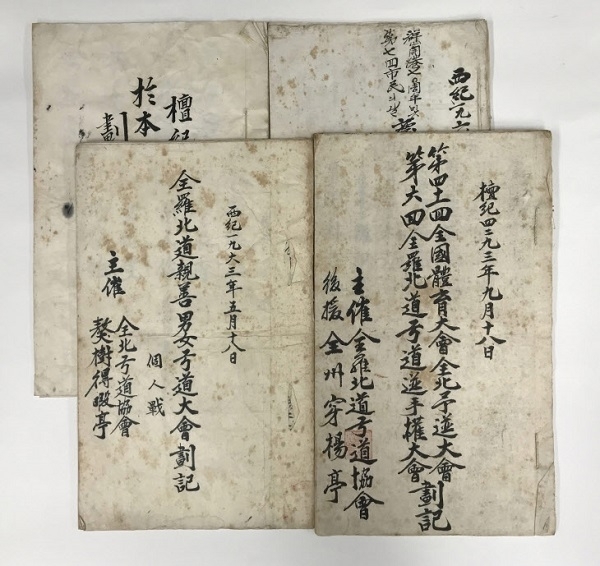 西紀一九六
第七回市民의날
檀紀
於本
劃
檀紀四二九三年九月十八日
第四十一回全國體育大會全北予選大會
第六回全羅北道弓道選手權大會劃記
主催全羅北道弓道協會
後援全州穿楊亭
西紀一九六三年五月十八日
全羅北道親善男女弓道大會劃記
個人戰
主催
全北弓道協會
獒樹得暇亭